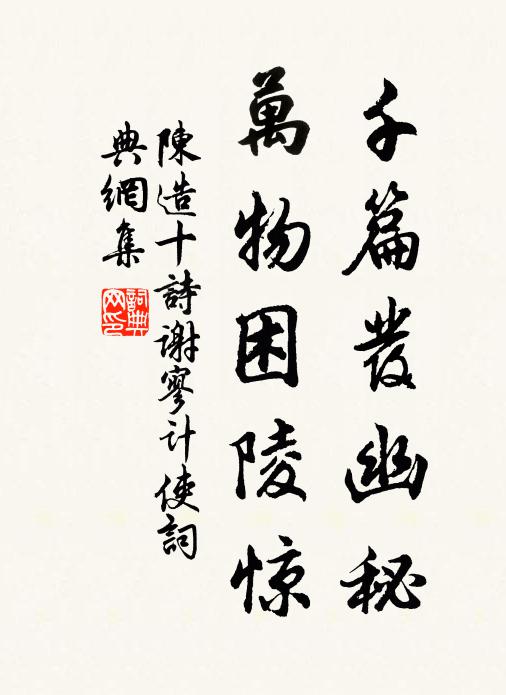 千篇發幽秘
萬物困陵惊
陳造十詩謝寥计使詞
典網集
詞典
网印